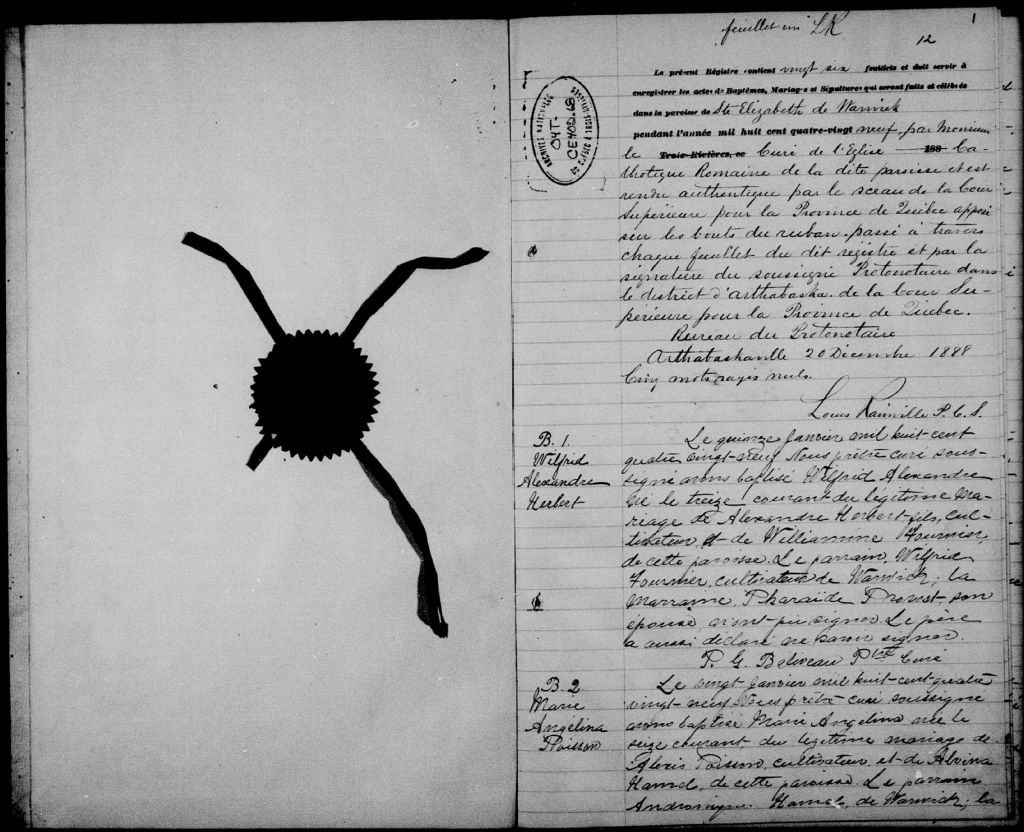 feuillet un LR
1
12
Le présent Régistre contient vingt six feuillets et doit servir à
enregistrer les actes de Baptêmes, Mariages et Sépultures qui seront faits et célébrés
dans la paroisse de Ste Elizabeth de Warwick
pendant l'année mil huit cent quatre-vingt neuf, par Monsieur
le Trois-Rivières, ce Curé de l'Eglise 188 Ca-
tholique Romaine de la dite paroisse et est
rendu authentique par le sceau de la Cour
Supérieure pour la Province de Québec apposé
sur les bouts du ruban passé à travers
chaque feuillet du dit régistre et par la
signature du soussigné Protonotaire dans
le district d'Arthabaska de la Cour Su-
périeure pour la Province de Québec.
Bureau du Protonotaire
Arthabaskaville 20 Décembre 1888
Cinq mots rayés nuls.
Louis Rainville P. C. S.
ARCHIVES NATIONALES
04T-
CE402-68
B. 1.
Wilfrid
Alexandre
Herbert
Le quinze Janvier mil huit-cent
quatre vingt-neuf Nous prêtre curé sous-
signé avons baptisé Wilfrid Alexandre
né le treize courant du légitime Ma-
riage de Alexandre Herbert fils, cul-
tivateur, et de Williamine Fournier,
de cette paroisse. Le parrain, Wilfrid
Fournier, cultivateur de Warwick; la
Marraine, Pharaïde Provost, son
épouse n'ont pu signer. Le père
a aussi déclaré ne savoir signer.
P. G. Béliveau Ptre Curé
B. 2
Marie
Angélina
Poisson
Le vingt Janvier mil huit-cent-quatre
vingt-neuf Nous prêtre curé soussigné
avons baptisé Marie Angelina née le
seize courant du légitime mariage de
Alexis Poisson, cultivateur, et de Alvina
Hamel, de cette paroisse. Le parrain
Andronique Hamel, de Warwick; la